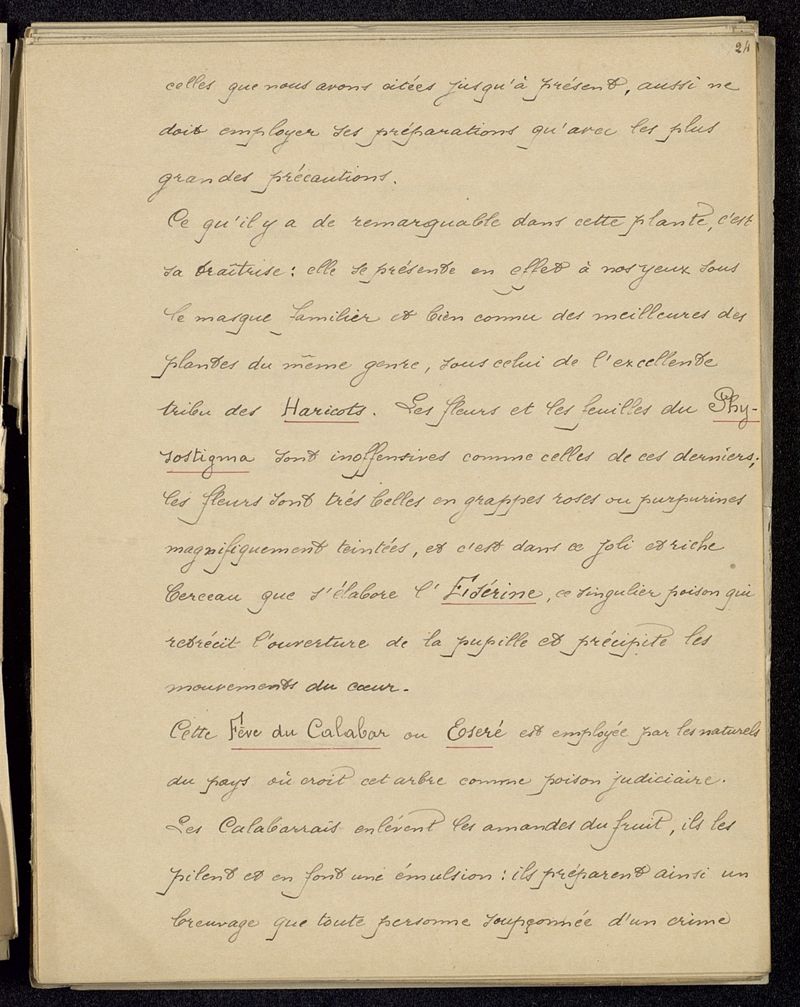 24
celles que nous avons citées jusqu'à présent, aussi ne
doit employer ses préparations qu'avec les plus
grandes précautions.
Ce qu'il y a de remarquable dans cette plante, c'est
sa traîtrise : elle se présente en effet à nos yeux sous
le masque familier et bien connu des meilleures des
plantes du même genre, sous celui de l'excellente
tribu des Haricots. Les fleurs et les feuilles du Phy-
sostigma sont inoffensives comme celles de ces derniers;
les fleurs sont très belles en grappes roses ou purpurines
magnifiquement teintées, et c'est dans ce joli et riche
berceau que s'élabore l'Esérine, ce singulier poison qui
retrécit l'ouverture de la pupille et précipite les
mouvements du cœur.
Cette Fève du Calabar ou Eseré est employée par les naturels
du pays où croit cet arbre comme poison judiciaire.
Les Calabarrais enlèvent les amandes du fruit, ils les
pilent et en font une émulsion : ils préparent ainsi un
breuvage que toute personne soupçonnée d'un crime